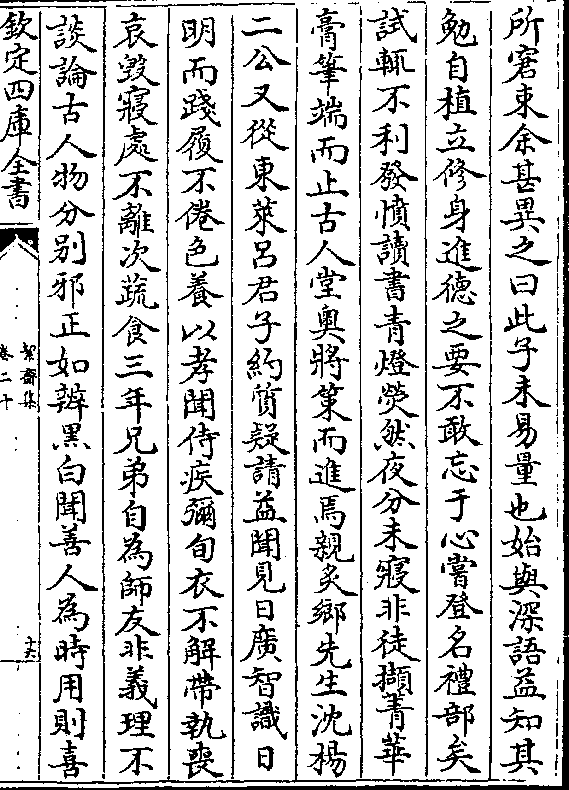 所窘束余甚異之曰此子未易量也始與深語益知其
勉自植立修身進德之要不敢忘于心嘗登名禮部矣
試輒不利發憤讀書青燈熒然夜分未寢非徒擷菁華
膏筆端而止古人堂奥將策而進焉親炙鄉先生沈楊
二公又從東萊呂君子約質疑請益聞見日廣智識日
明而踐履不倦色養以孝聞侍疾彌旬衣不解帶執喪
哀毀寢處不離次蔬食三年兄弟自為師友非義理不
談論古人物分别邪正如辨黑白聞善人為時用則喜
欽定四庫全書
絜齋集
卷二十
十六